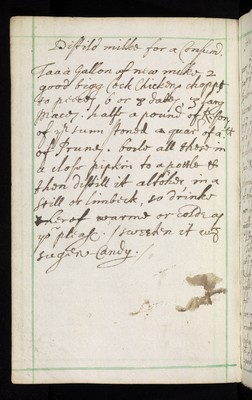 Distild milke for a Consum:
Taa a Gallon of new milke 2
good bigg Cock Chickens chopt
to pieces, 6 or 8 dates, 3 larg
Macy. half a pound of
of ye sunn stoned a quar of a li
of Prune. boyle all these in
a close pipkin to a pottle &
then distill it altoher in a
still or limbeck, so drinke
thereof warme or Colde as
you please. / sweeten it wth
sugere Candy. /